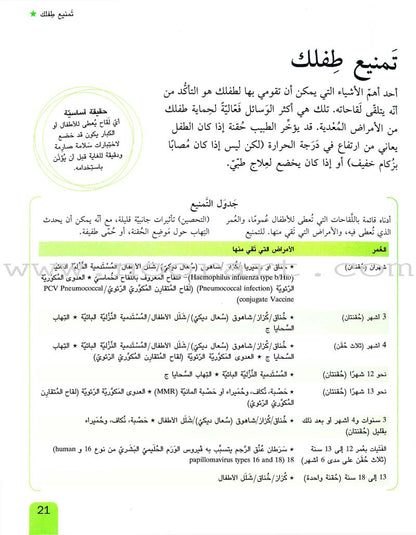 ★ تَمنيع طِفلك
تَمنيع طِفلك
أحد أهمّ الأشياء التي يمكن أن تقومي بها لطفلك هو التأكُّد من
أنّه يتلقّى لقاحاته. تلك هي أكثر الوَسائل فَعاليّةً لحِماية طفلك
من الأمراض المُعدية. قد يؤخِّر الطبيب حُقنة إذا كان الطفل
يعاني من ارتفاع في دَرَجة الحرارة (لكن ليس إذا كان مُصابًا
بزُكام خفيف) أو إذا كان يخضع لعِلاج طبّيّ.
حقيقة أساسيّة
أيّ لقاح يُعطى للأطفال أو
الكبار يكون قد خَضع
لاختبارات سَلامة صارِمة
ودقيقة للغاية قبل أن يُؤذَن
باستخدامه.
جَدوَل التَمنيع
أدناه قائمة باللِّقاحات التي تُعطى للأطفال عُمومًا، والعُمر
الذي تُعطى فيه، والأمراض التي تَقي منها. للتمنيع
(التحصين) تأثيرات جانبيّة قليلة، مع أنّه يمكن أن يحدث
التِهاب حول مَوضِع الحُقنة، أو حُمّى طفيفة.
العُمر
الأمراض التي تَقي منها
شهران (حُقنتان)
(Haemophilus influenza type b/Hib)
(Pneumococcal infection) (لقاح المُتقارِن المكوَّريّ الرئويّ/ PCV Pneumococcal
(conjugate Vaccine
3 أشهر (حُقنتان)
★ خُناق/كُزاز/شاهوق (سُعال ديكيّ)/شَلَل الأطفال/المُستَدمية النَّزْليّة البائيّة ★ التِهاب
السَّحايا ج
4 أشهر (ثلاث حُقَن)
★ خُناق/كُزاز/شاهوق (سُعال ديكيّ)/شَلَل الأطفال/المُستَدمية النَّزْليّة البائيّة ★ التِهاب
السَّحايا ج ★ العدوى المكوَّريّة الرئويّة (لقاح المُتقارِن المكوَّريّ الرئويّ)
نحو 12 شهرًا
★ المُستَدمية النَّزْليّة البائيّة ★ التِهاب السَّحايا ج
نحو 13 شهرًا (حُقنتان)
★ حَصبة، نُكاف، وحُميراء أو حَصبة ألمانيّة (MMR) ★ العدوى المكوَّريّة الرئويّة (لقاح المُتقارِن
المكوَّريّ الرئويّ)
3 سنوات و4 أشهر أو بعد ذلك
بقليل (حُقنتان)
★ خُناق/كُزاز/شاهوق (سُعال ديكيّ)/شَلَل الأطفال ★ حَصبة، نُكاف، وحُميراء
الفتَيات بعُمر 12 إلى 13 سنة
(ثلاث حُقَن على مدى 6 أشهر)
★ سَرَطان عُنُق الرَّحِم يتسبَّب به فَيروس الوَرَم الحُلَيميّ البَشَريّ من نوع 16 و human)
papillomavirus types 16 and 18) 18
13 إلى 18 سنة (حُقنة واحدة)
★ كُزاز/خُناق/شَلَل الأطفال
21